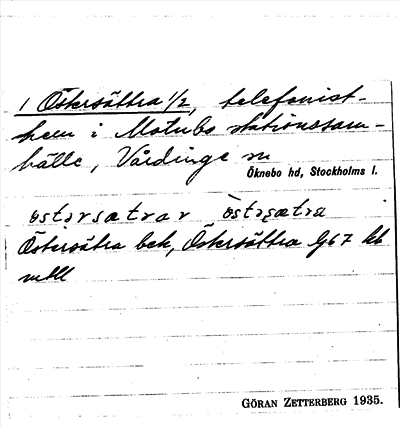 1 Östersättra 1/2, telefonist-
hem i Mölnbo stationssam-
hälle, Vårdinge sn
Öknebo hd, Stockholms l.
östərsætrar östəsætra
Östersätra bek, Östersättra G67 kb
GÖRAN ZETTERBERG 1935.